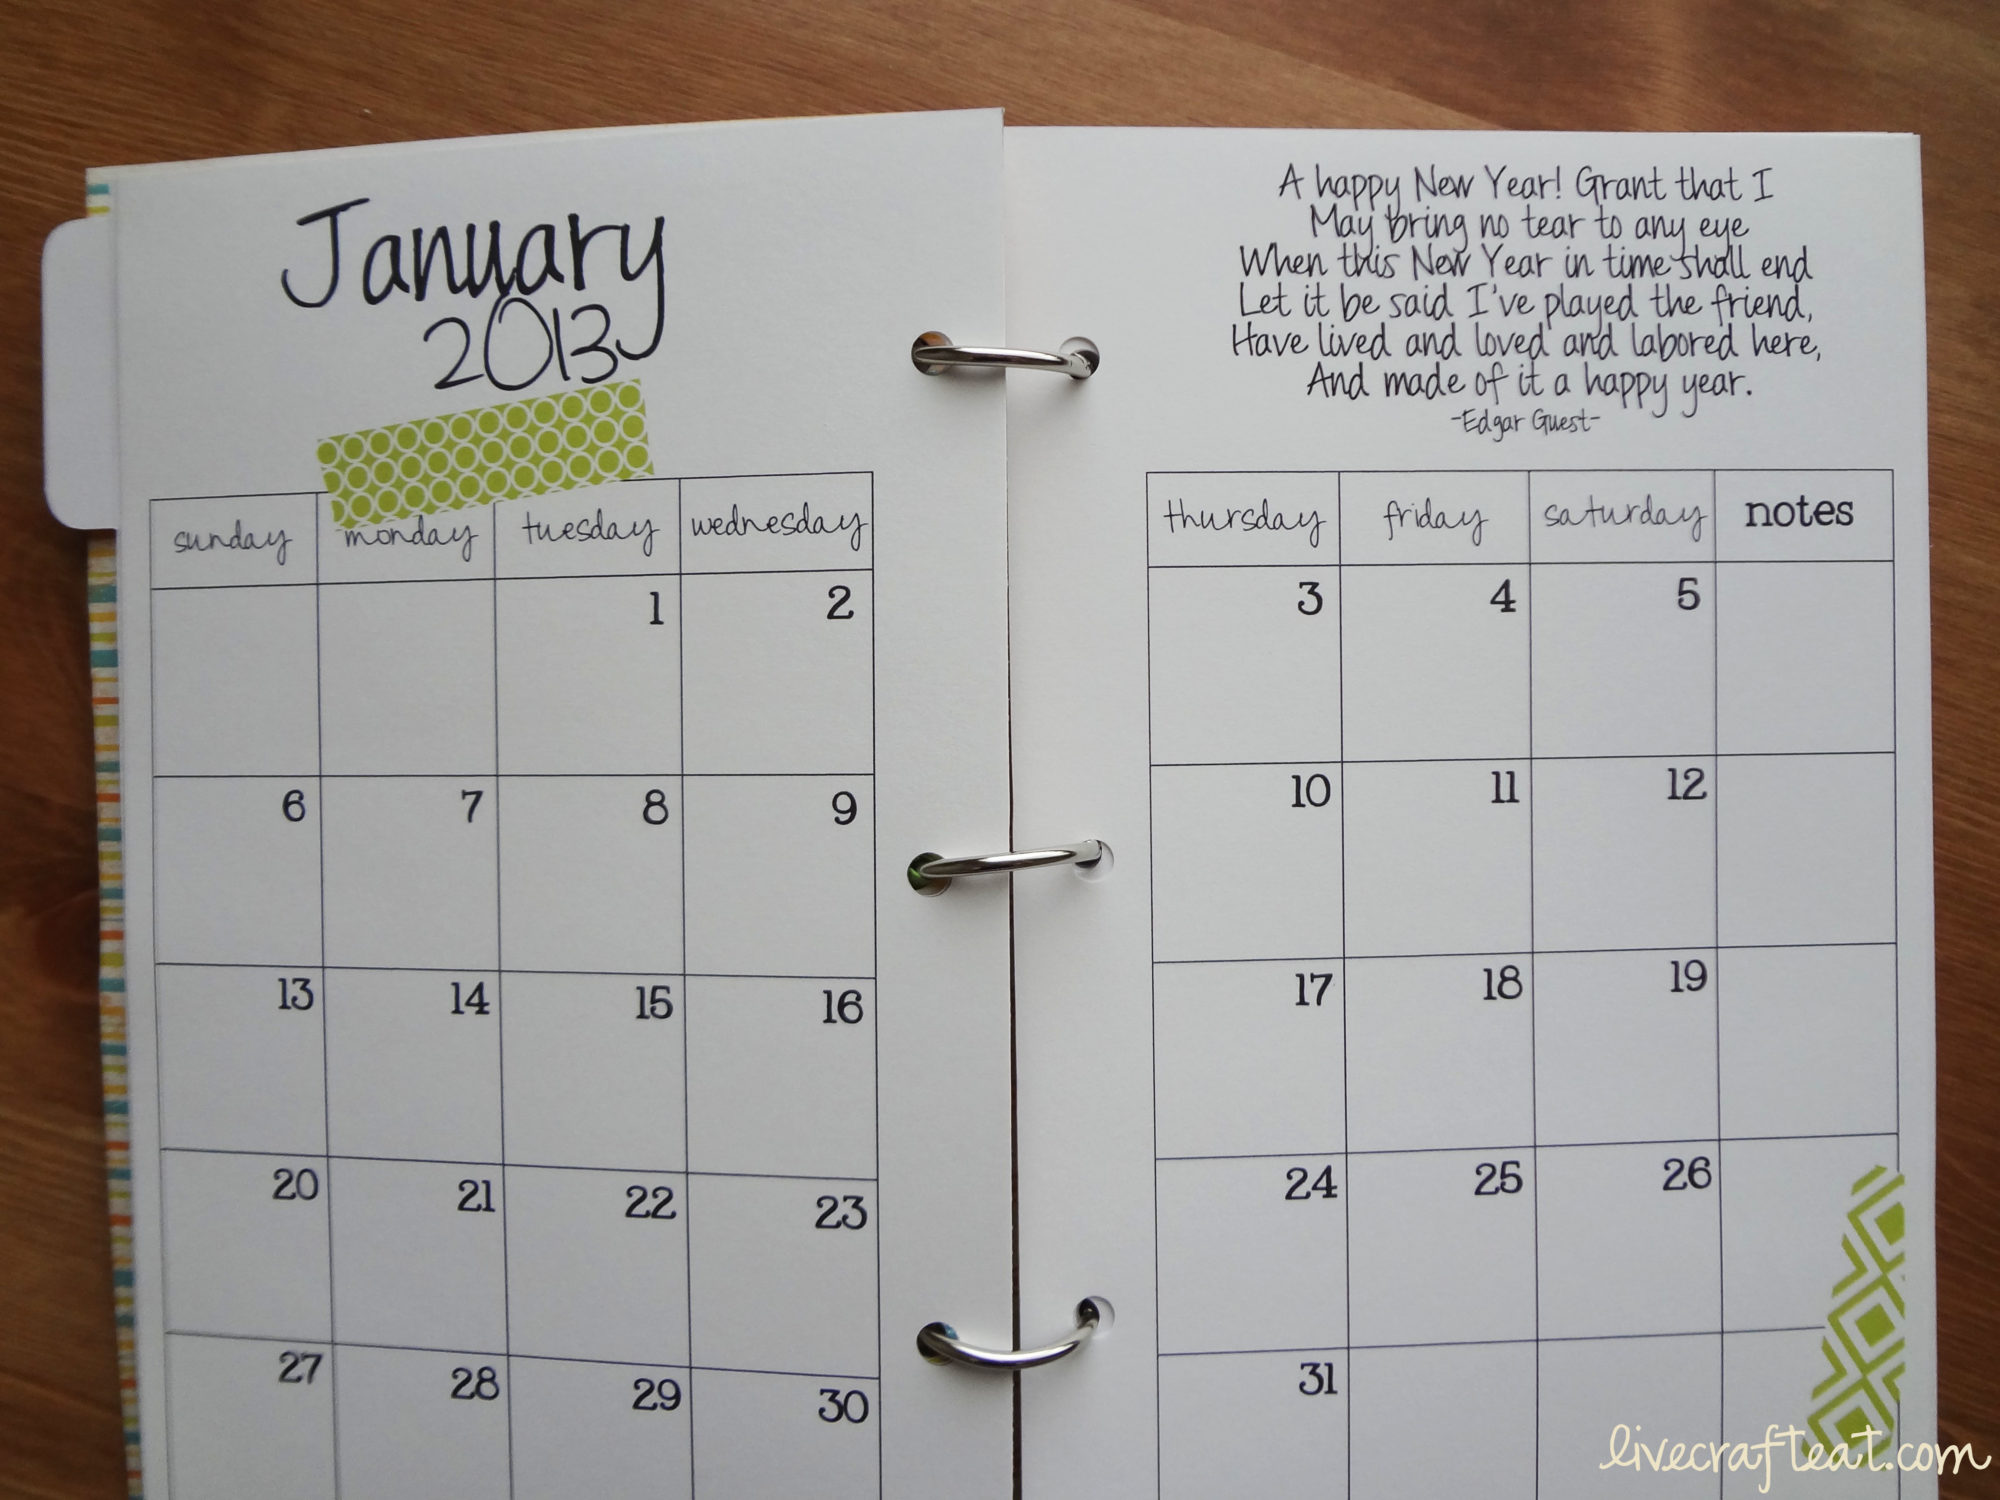 January
2013
sunday monday tuesday wednesday
1 2
6 7 8 9
13 14 15 16
20 21 22 23
27 28 29 30
A happy New Year! Grant that I
May bring no tear to any eye
When this New Year in time shall end
Let it be said I've played the friend,
Have lived and loved and labored here,
And made of it a happy year.
-Edgar Guest-
thursday friday saturday notes
3 4 5
10 11 12
17 18 19
24 25 26
31
livecrafteat.com